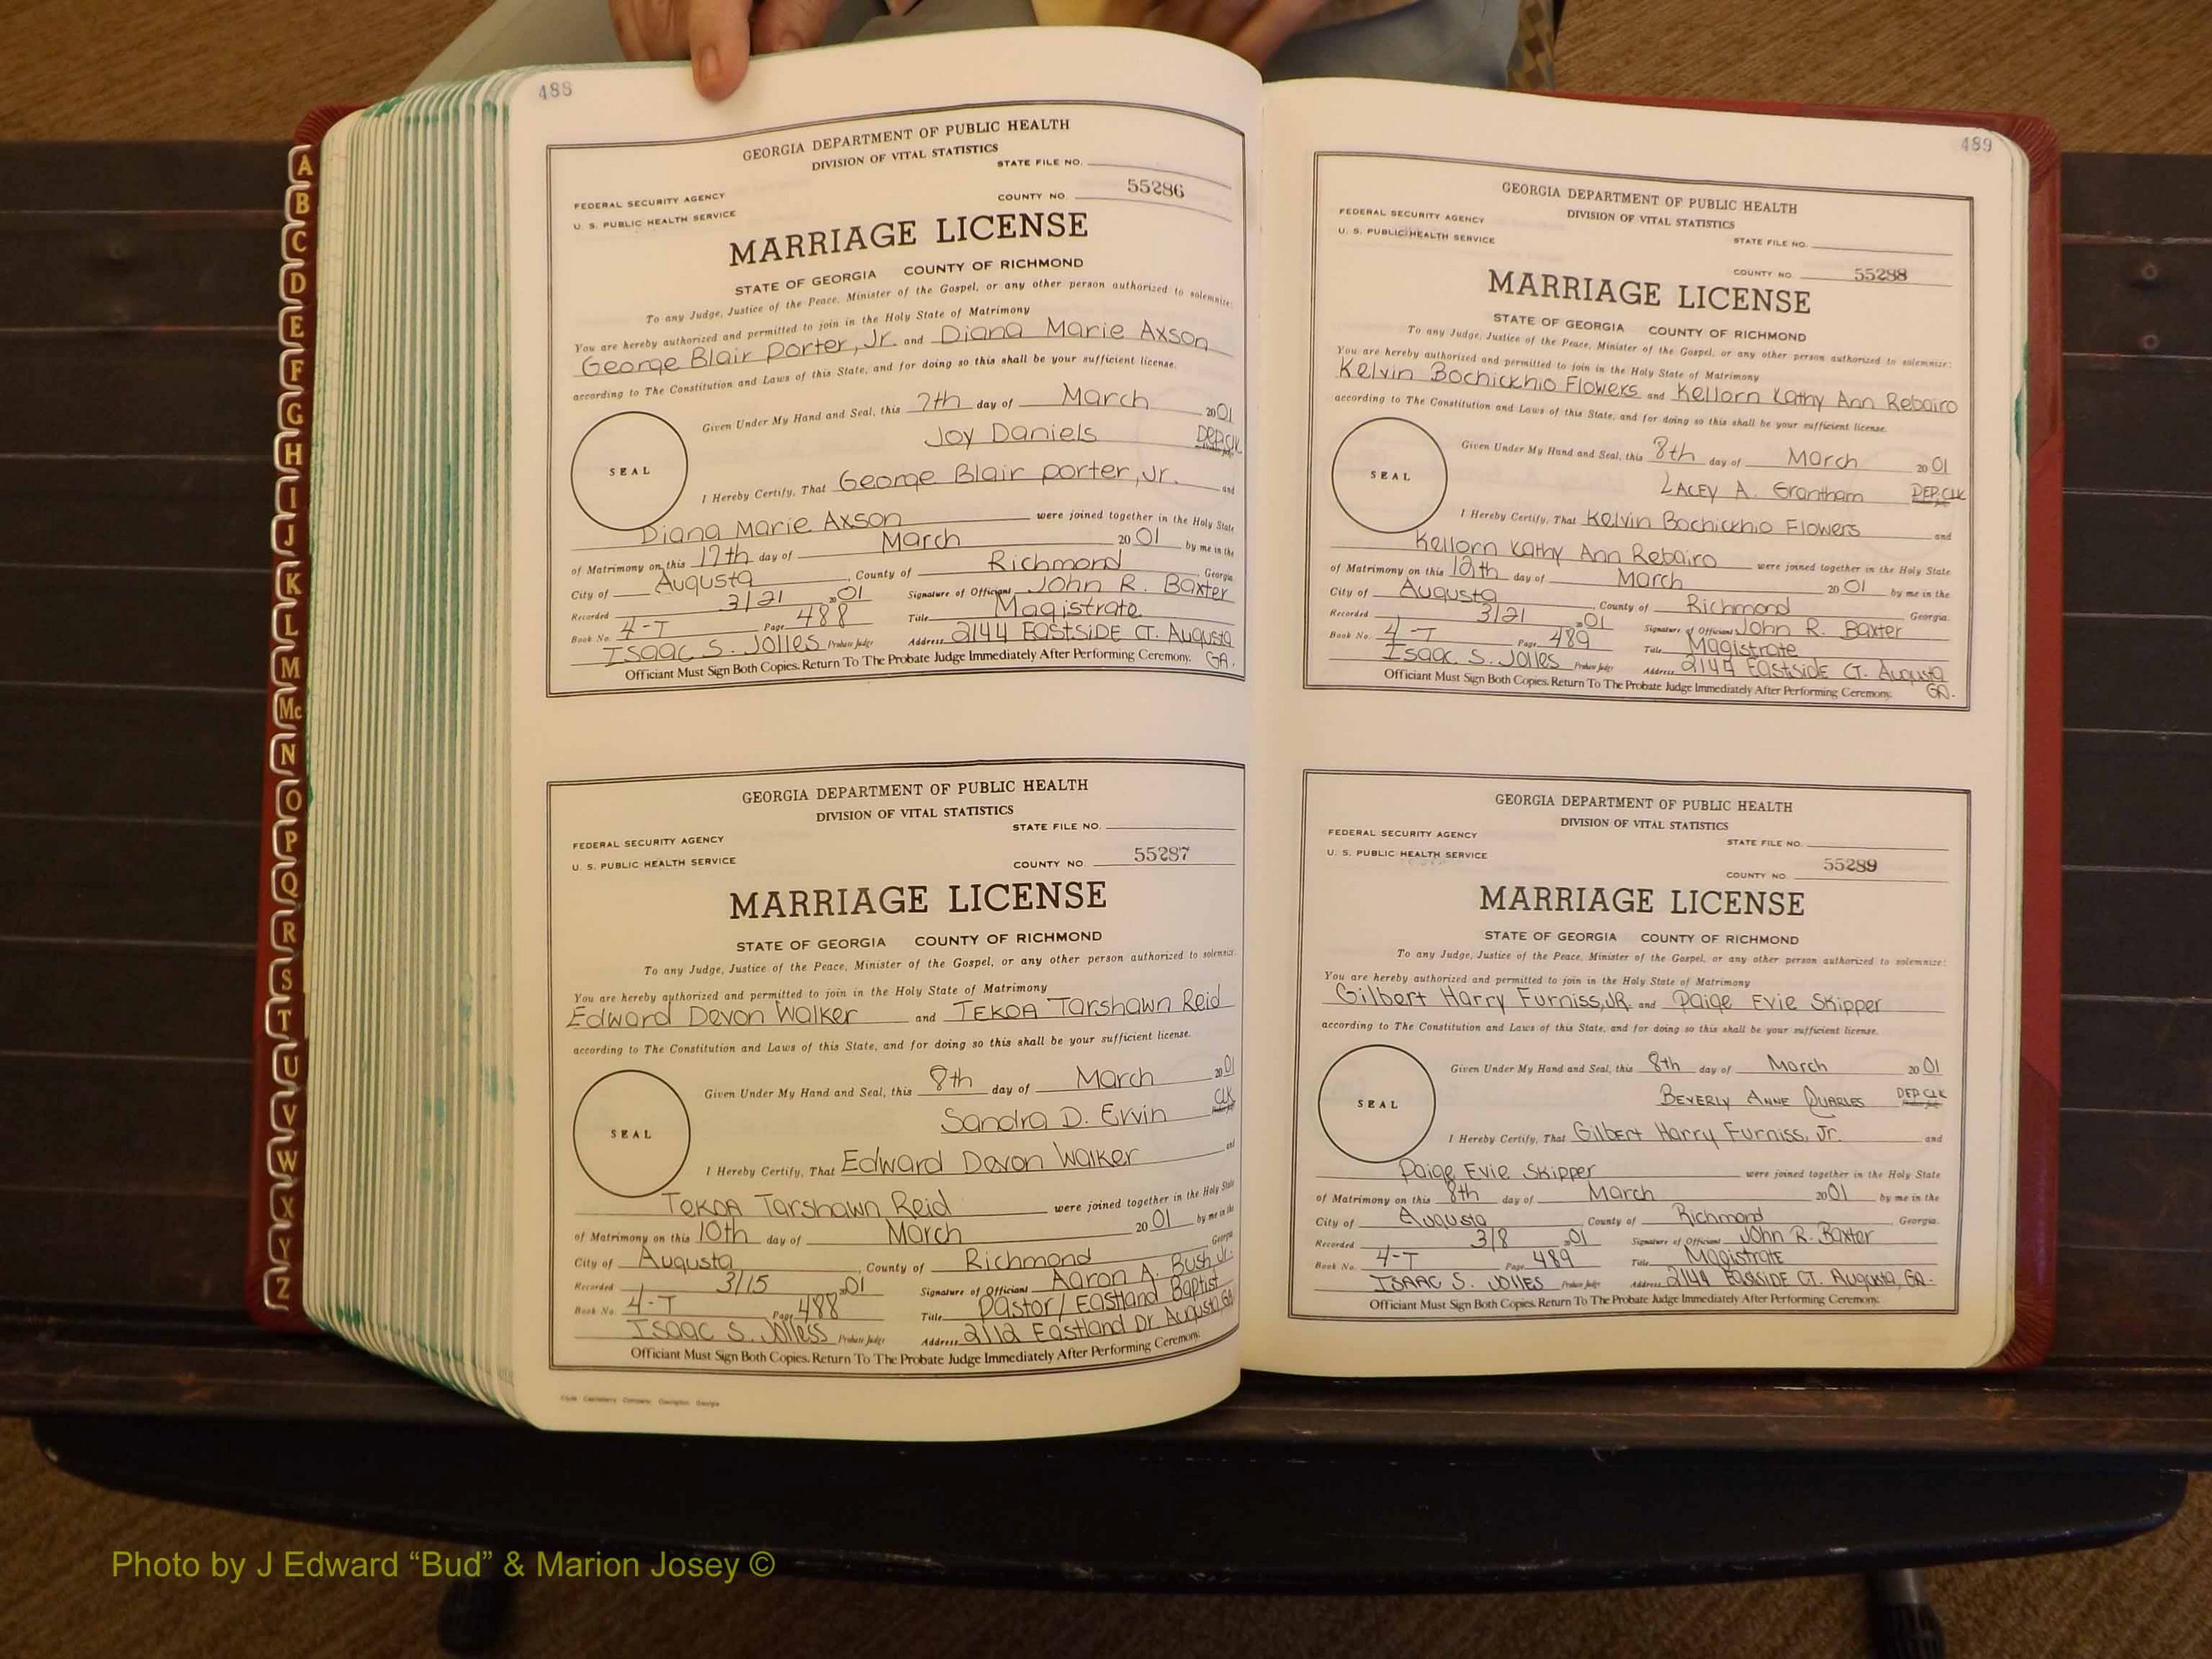 488
GEORGIA DEPARTMENT OF PUBLIC HEALTH
DIVISION OF VITAL STATISTICS
STATE FILE NO.
FEDERAL SECURITY AGENCY
COUNTY NO. 55286
U. S. PUBLIC HEALTH SERVICE
MARRIAGE LICENSE
STATE OF GEORGIA COUNTY OF RICHMOND
To any Judge, Justice of the Peace, Minister of the Gospel, or any other person authorized to solemnize:
You are hereby authorized and permitted to join in the Holy State of Matrimony
George Blair Porter, Jr. and Diana Marie Axson
according to The Constitution and Laws of this State, and for doing so this shall be your sufficient license.
Given Under My Hand and Seal, this 7th day of March 2001
Joy Daniels DEP.CLK
SEAL
I Hereby Certify, That George Blair porter, Jr. and
Diana Marie Axson were joined together in the Holy State
of Matrimony on this 17th day of March 2001 by me in the
City of Augusta, County of Richmond, Georgia.
Recorded 3/21 2001 Signature of Officiant John R. Baxter
Book No. 4-T Page 488 Title Magistrate
Isaac S. Jolles Probate Judge Address 2144 EastSIDE CT. Augusta
GA.
Officiant Must Sign Both Copies. Return To The Probate Judge Immediately After Performing Ceremony.
GEORGIA DEPARTMENT OF PUBLIC HEALTH
DIVISION OF VITAL STATISTICS
STATE FILE NO.
FEDERAL SECURITY AGENCY
COUNTY NO. 55287
U. S. PUBLIC HEALTH SERVICE
MARRIAGE LICENSE
STATE OF GEORGIA COUNTY OF RICHMOND
To any Judge, Justice of the Peace, Minister of the Gospel, or any other person authorized to solemnize:
You are hereby authorized and permitted to join in the Holy State of Matrimony
Edward Devon Walker and TEKOA Tarshawn Reid
according to The Constitution and Laws of this State, and for doing so this shall be your sufficient license.
Given Under My Hand and Seal, this 8th day of March 2001
Sandra D. Ervin CLK
SEAL
I Hereby Certify, That Edward Devon Walker and
TEKOA Tarshawn Reid were joined together in the Holy State
of Matrimony on this 10th day of March 2001 by me in the
City of Augusta, County of Richmond Georgia
Recorded 3/15 2001 Signature of Officiant Aaron A. Bush Jr.
Book No. 4-T Page 488 Title Pastor/Eastland Baptist
Isaac S. Jolless Probate Judge Address 2112 Eastland Dr Augusta, GA
Officiant Must Sign Both Copies. Return To The Probate Judge Immediately After Performing Ceremony.
489
GEORGIA DEPARTMENT OF PUBLIC HEALTH
DIVISION OF VITAL STATISTICS
FEDERAL SECURITY AGENCY
U. S. PUBLIC HEALTH SERVICE
STATE FILE NO.
COUNTY NO. 55288
MARRIAGE LICENSE
STATE OF GEORGIA COUNTY OF RICHMOND
To any Judge, Justice of the Peace, Minister of the Gospel, or any other person authorized to solemnize:
You are hereby authorized and permitted to join in the Holy State of Matrimony
Kelvin Bochicchio Flowers and Kellorn Kathy Ann Rebairo
according to The Constitution and Laws of this State, and for doing so this shall be your sufficient license.
Given Under My Hand and Seal, this 8th day of March 2001
LACEY A. Grantham DEP.CLK
SEAL
I Hereby Certify, That Kelvin Bochicchio Flowers and
Kellorn Kathy Ann Rebairo were joined together in the Holy State
of Matrimony on this day of March 2001 by me in the
City of Augusta, County of Richmond Georgia.
Recorded 3/21 2001 Signature of Officiant John R. Baxter
Book No. 4-T Page 489 Title Magistrate
Isaac S. Jolles Probate Judge Address 2144 Eastside CT. Augusta
GA.
Officiant Must Sign Both Copies. Return To The Probate Judge Immediately After Performing Ceremony.
GEORGIA DEPARTMENT OF PUBLIC HEALTH
DIVISION OF VITAL STATISTICS
FEDERAL SECURITY AGENCY
STATE FILE NO.
U. S. PUBLIC HEALTH SERVICE
COUNTY NO. 55289
MARRIAGE LICENSE
STATE OF GEORGIA COUNTY OF RICHMOND
To any Judge, Justice of the Peace, Minister of the Gospel, or any other person authorized to solemnize:
You are hereby authorized and permitted to join in the Holy State of Matrimony
Gilbert Harry Furniss, JR. and Paige Evie Skipper
according to The Constitution and Laws of this State, and for doing so this shall be your sufficient license.
Given Under My Hand and Seal, this 8th day of March 2001
BEVERLY ANNE QUARLES DEP CLK
SEAL
I Hereby Certify, That Gilbert Harry Furniss, Jr. and
Paige Evie Skipper were joined together in the Holy State
of Matrimony on this 8th day of March 2001 by me in the
City of Augusta, County of Richmond, Georgia.
Recorded 3/8 2001 Signature of Officiant John R. Baxter
Book No. 4-T Page 489 Title Magistrate
ISAAC S. JOLLES Probate Judge Address 2144 EastSIDE CT. Augusta, GA.
Officiant Must Sign Both Copies. Return To The Probate Judge Immediately After Performing Ceremony.
A
B
C
D
E
F
G
H
I
J
K
L
M
Mc
N
O
P
Q
R
S
T
U
V
W
X
Y
Z
Photo by J Edward “Bud” & Marion Josey ©